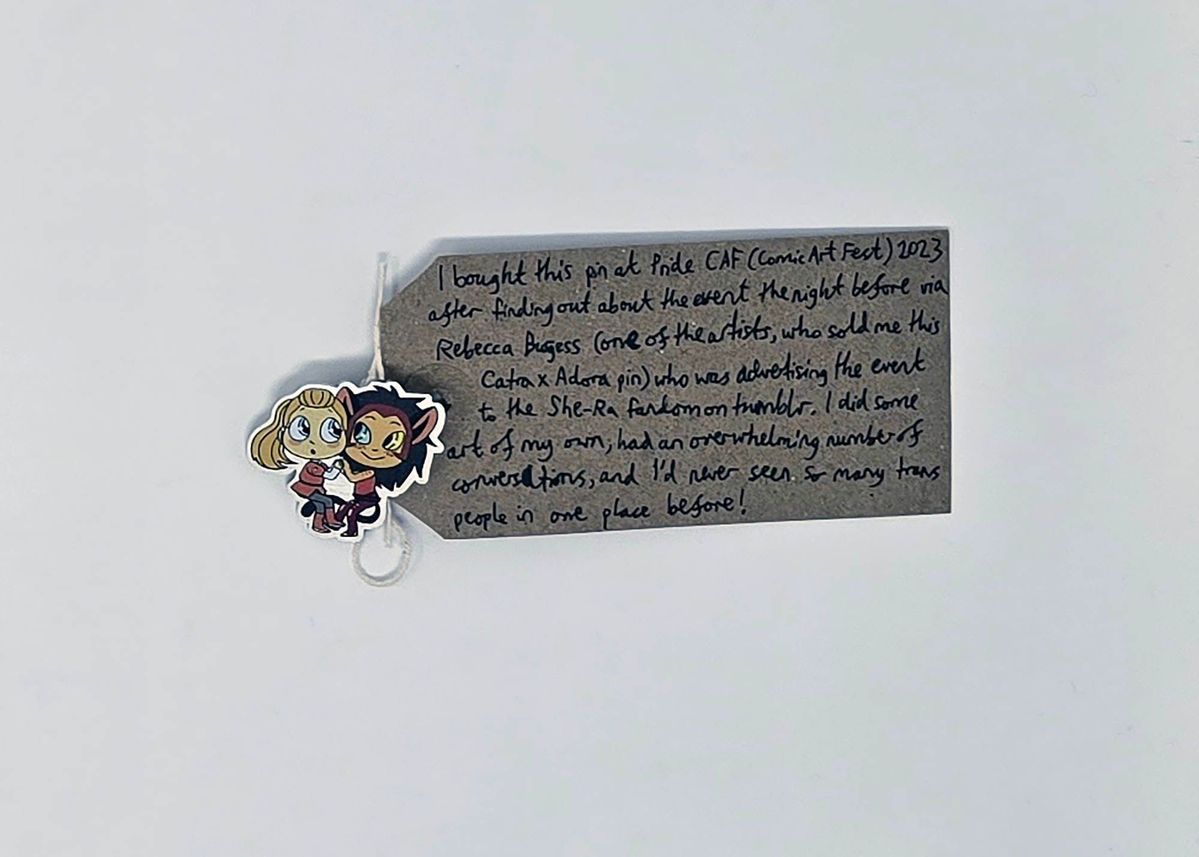 I bought this pin at Pride CAF (Comic Art Fest) 2023
after finding out about the event the night before via
Rebecca Burgess (one of the artists, who sold me this
Catra x Adora pin) who was advertising the event
to the She-Ra fandom on tumblr. I did some
art of my own, had an overwhelming number of
conversations, and I'd never seen so many trans
people in one place before!